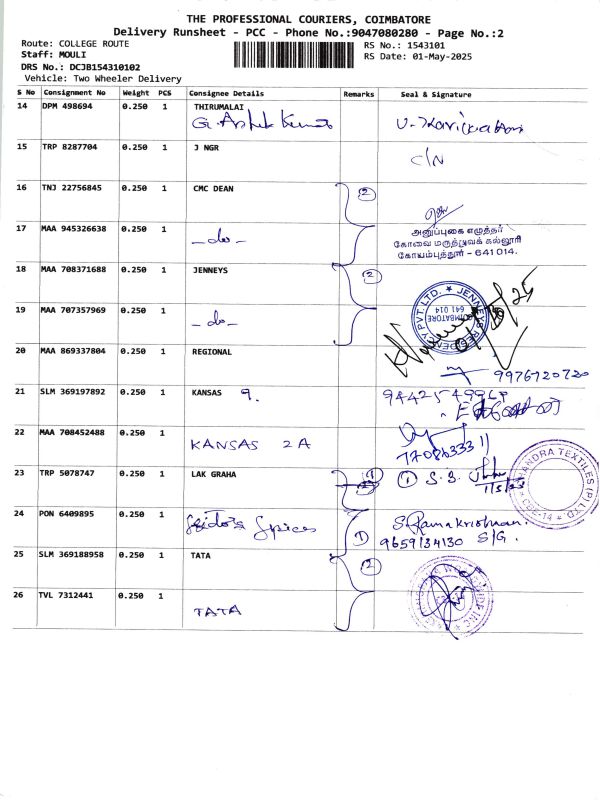 THE PROFESSIONAL COURIERS, COIMBATORE
Delivery Runsheet - PCC - Phone No.:9047080280 - Page No.:2
Route: COLLEGE ROUTE
RS No.: 1543101
Staff: MOULI
RS Date: 01-May-2025
DRS No.: DCJB154310102
Vehicle: Two Wheeler Delivery
S No Consignment No Weight PCS Consignee Details Remarks Seal & Signature
14 DPM 498694 0.250 1 THIRUMALAI
15 TRP 8287704 0.250 1 J NGR C/N
16 TNJ 22756845 0.250 1 CMC DEAN 2
அனுப்புகை எழுத்தர்
17 MAA 945326638 0.250 1 -do-
கோவை மருத்துவக் கல்லூரி
கோயம்புத்தூர் - 641 014.
18 MAA 708371688 0.250 1 JENNEYS 2
JENNEYS RESIDENCY PVT. LTD.
COIMBATORE
641 014
19 MAA 707357969 0.250 1 -do-
20 MAA 869337804 0.250 1 REGIONAL
9976720720
21 SLM 369197892 0.250 1 KANSAS 9.
22 MAA 708452488 0.250 1 KANSAS 2A
23 TRP 5078747 0.250 1 LAK GRAHA 1 S.S.
1/5/25
CHANDRA TEXTILES (P) LTD
CBE-14
24 PON 6409895 0.250 1 Spices 1 S. Ramakrishnan
9659134130 S/G.
25 SLM 369188958 0.250 1 TATA 2
26 TVL 7312441 0.250 1 TATA